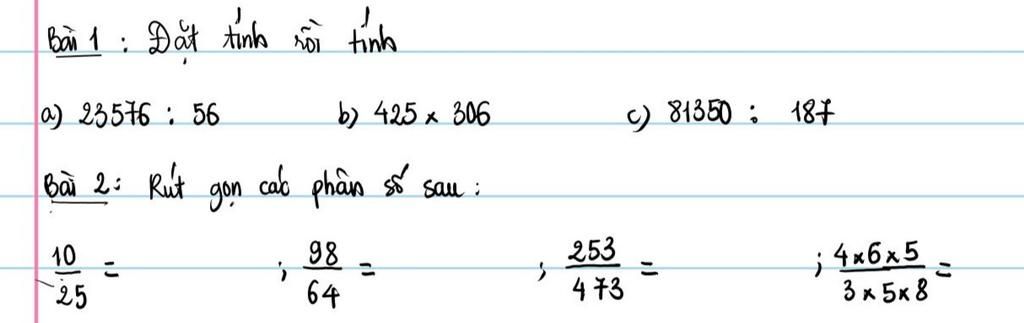 Bài 1 : Đặt tính rồi tính
a) 23576 : 56 b) 425 x 306 c) 81350 : 187
Bài 2 : Rút gọn các phân số sau :
10/25 = ; 98/64 = ; 253/473 = ; 4x6x5/3x5x8 =